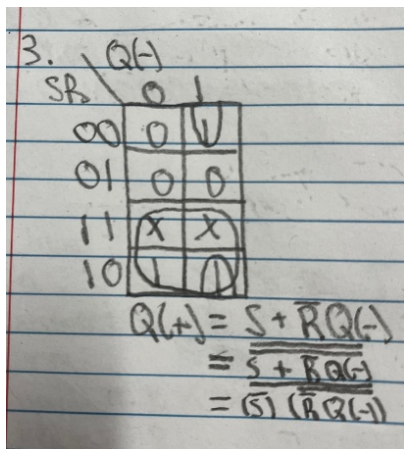 3. Q(-)
SR 0 1
00 0 1
01 0 0
11 X X
10 1 1
Q(+) = S + R̅Q(-)
= S̿ ̿+̿ ̿R̅Q̿(̿-̿)̿
= \overline{(\overline{S}) (\overline{\overline{R}Q(-)})}